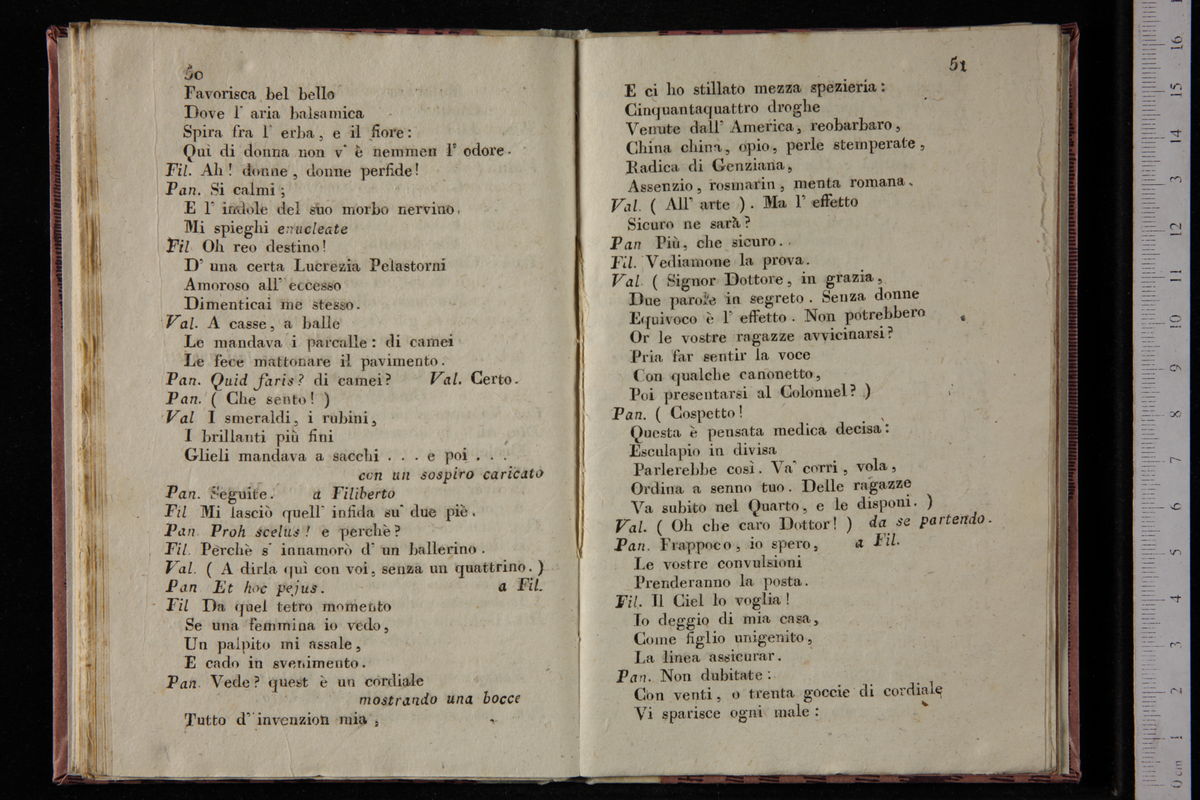 50
Favorisca bel bello
Dove l' aria balsamica
Spira fra l' erba, e il fiore:
Quì di donna non v' è nemmen l' odore.
Fil. Ah! donne, donne perfide!
Pan. Si calmi;
E l' indole del suo morbo nervino,
Mi spieghi enucleate
Fil Oh reo destino!
D' una certa Lucrezia Pelastorni
Amoroso all' eccesso
Dimenticai me stesso.
Val. A casse, a balle
Le mandava i parcalle: di camei
Le fece mattonare il pavimento.
Pan. Quid faris? di camei? Val. Certo.
Pan. ( Che sento! )
Val I smeraldi, i rubini,
I brillanti più fini
Glieli mandava a sacchi . . . e poi . . .
con un sospiro caricato
Pan. Seguite. a Filiberto
Fil Mi lasciò quell' infida su' due piè.
Pan. Proh scelus! e perchè?
Fil. Perchè s' innamorò d' un ballerino.
Val. ( A dirla quì con voi, senza un quattrino. )
Pan Et hoc pejus. a Fil.
Fil Da quel tetro momento
Se una femmina io vedo,
Un palpito mi assale,
E cado in svenimento.
Pan. Vede? quest è un cordiale
mostrando una bocce
Tutto d' invenzion mia,
51
E ci ho stillato mezza spezieria:
Cinquantaquattro droghe
Venute dall' America, reobarbaro,
China china, opio, perle stemperate,
Radica di Genziana,
Assenzio, rosmarin, menta romana.
Val. ( All' arte ). Ma l' effetto
Sicuro ne sarà?
Pan Più, che sicuro.
Fil. Vediamone la prova.
Val. ( Signor Dottore, in grazia,
Due parole in segreto. Senza donne
Equivoco è l' effetto. Non potrebbero
Or le vostre ragazze avvicinarsi?
Pria far sentir la voce
Con qualche canonetto,
Poi presentarsi al Colonnel? )
Pan. ( Cospetto!
Questa è pensata medica decisa:
Esculapio in divisa
Parlerebbe così. Va' corri, vola,
Ordina a senno tuo. Delle ragazze
Va subito nel Quarto, e le disponi. )
Val. ( Oh che caro Dottor! ) da se partendo.
Pan. Frappoco, io spero, a Fil.
Le vostre convulsioni
Prenderanno la posta.
Fil. Il Ciel lo voglia!
Io deggio di mia casa,
Come figlio unigenito,
La linea assicurar.
Pan. Non dubitate:
Con venti, o trenta goccie di cordiale
Vi sparisce ogni male:
0 cm 1 2 3 4 5 6 7 8 9 10 11 12 13 14 15 16